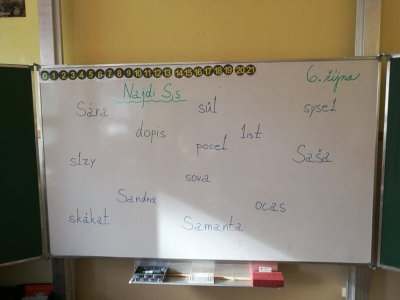 0 1 2 3 4 5 6 7 8 9 10 11 12 13 14 15 16 17 18 19 20 21
6. října
Najdi S,s
Sára sůl sysel
dopis list
posel
slzy Saša
sova
Sandra ocas
skákat Samanta